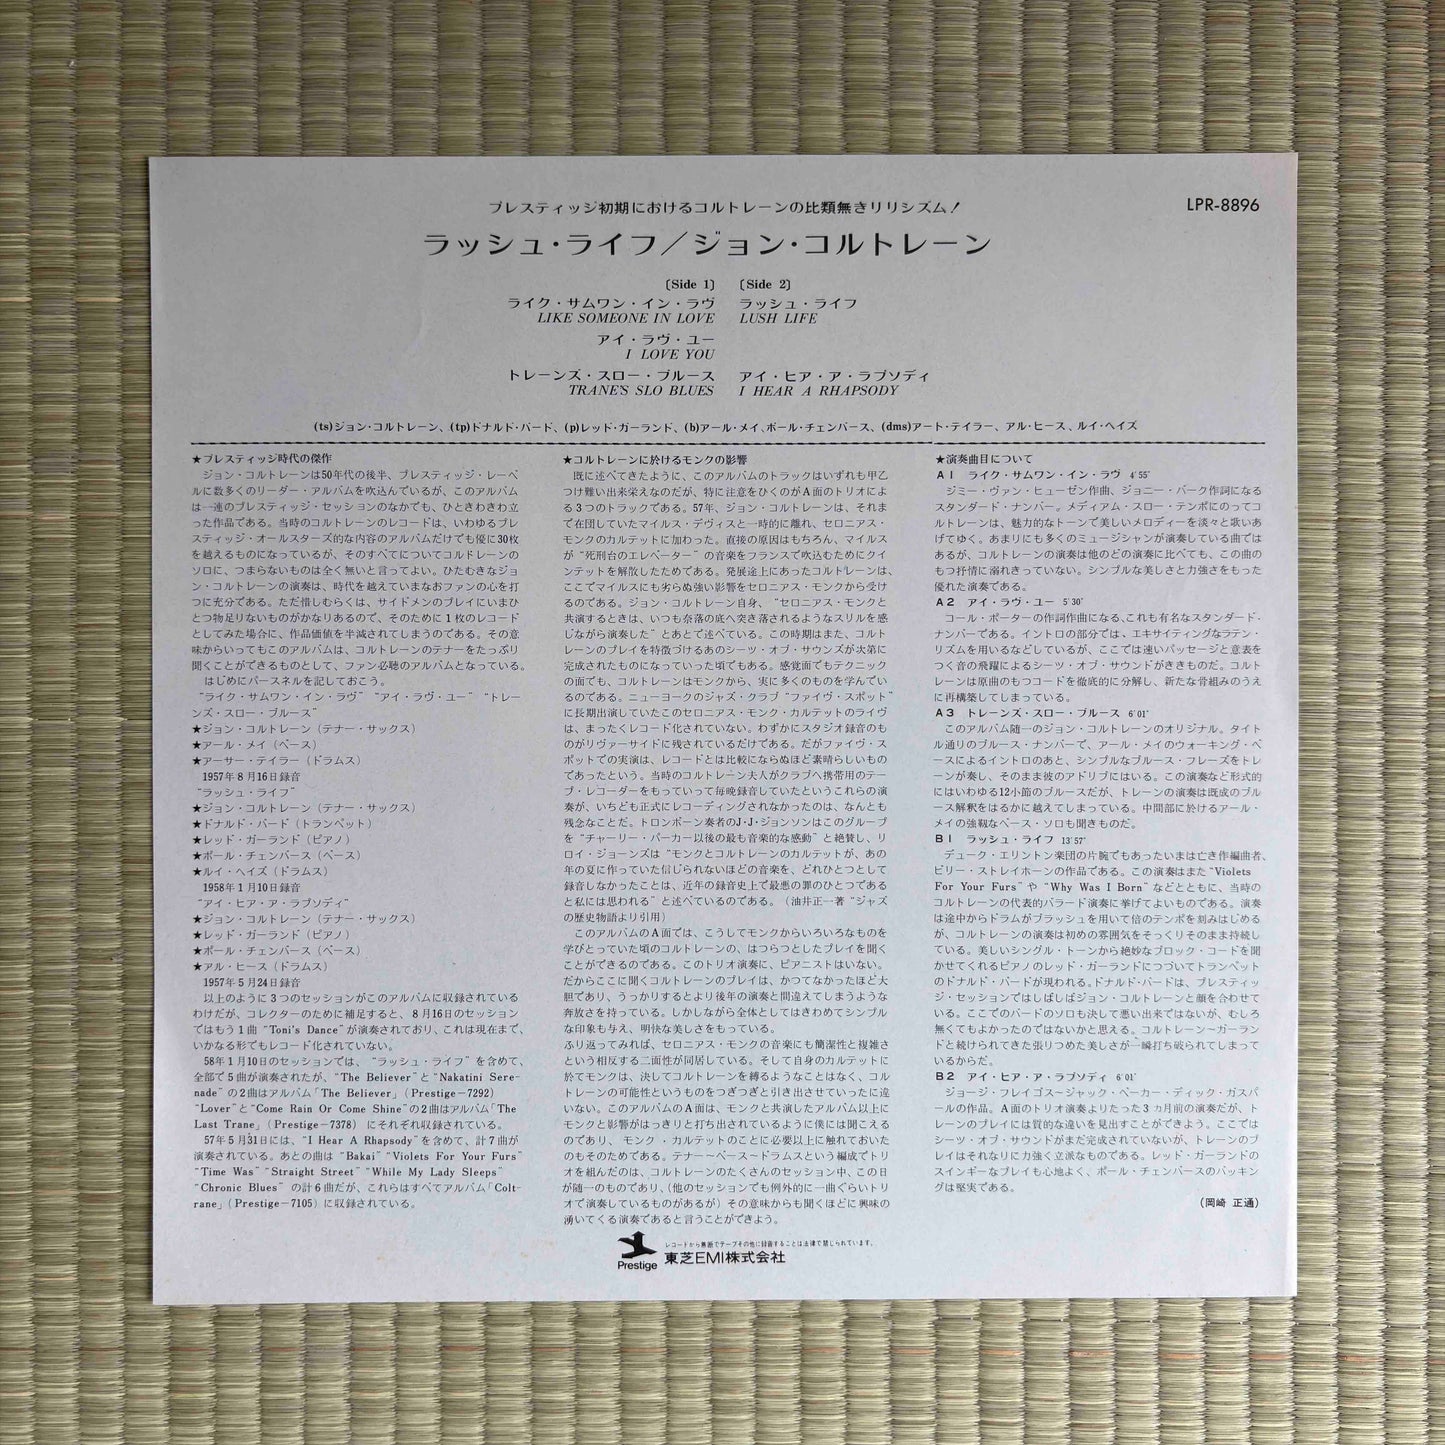 プレスティッジ初期におけるコルトレーンの比類無きリリシズム!
LPR-8896
ラッシュ・ライフ／ジョン・コルトレーン
〔Side 1〕
ライク・サムワン・イン・ラヴ
LIKE SOMEONE IN LOVE
アイ・ラヴ・ユー
I LOVE YOU
トレーンズ・スロー・ブルース
TRANE'S SLO BLUES
〔Side 2〕
ラッシュ・ライフ
LUSH LIFE
アイ・ヒア・ア・ラプソディ
I HEAR A RHAPSODY
(ts)ジョン・コルトレーン、(tp)ドナルド・バード、(p)レッド・ガーランド、(b)アール・メイ、ポール・チェンバース、(dms)アート・テイラー、アル・ヒース、ルイ・ヘイズ
★プレスティッジ時代の傑作
ジョン・コルトレーンは50年代の後半、プレスティッジ・レーベ
ルに数多くのリーダー・アルバムを吹込んでいるが、このアルバム
は一連のプレスティッジ・セッションのなかでも、ひときわきわ立
った作品である。当時のコルトレーンのレコードは、いわゆるプレ
スティッジ・オールスターズ的な内容のアルバムだけでも優に30枚
を越えるものになっているが、そのすべてについてコルドレーンの
ソロに、つまらないものは全く無いと言ってよい。ひたむきなジョ
ン・コルトレーンの演奏は、時代を越えていまなおファンの心を打
つに充分である。ただ惜しむらくは、サイドメンのプレイにいまひ
とつ物足りないものがかなりあるので、そのために1枚のレコード
としてみた場合に、作品価値を半減されてしまうのである。その意
味からいってもこのアルバムは、コルトレーンのテナーをたっぷり
聞くことができるものとして、ファン必聴のアルバムとなっている。
はじめにパースネルを記しておこう。
“ライク・サムワン・イン・ラヴ” “アイ・ラヴ・ユー” “トレー
ンズ・スロー・ブルース”
★ジョン・コルトレーン（テナー・サックス）
★アール・メイ（ベース）
★アーサー・テイラー（ドラムス）
1957年8月16日録音
“ラッシュ・ライフ”
★ジョン・コルトレーン（テナー・サックス）
★ドナルド・バード（トランペット）
★レッド・ガーランド（ピアノ）
★ポール・チェンバース（ベース）
★ルイ・ヘイズ（ドラムス）
1958年1月10日録音
“アイ・ヒア・ア・ラプソディ”
★ジョン・コルトレーン（テナー・サックス）
★レッド・ガーランド（ピアノ）
★ポール・チェンバース（ベース）
★アル・ヒース（ドラムス）
1957年5月24日録音
以上のように3つのセッションがこのアルバムに収録されている
わけだが、コレクターのために補足すると、8月16日のセッション
ではもう1曲“Toni's Dance”が演奏されており、これは現在まで、
いかなる形でもレコード化されていない。
58年1月10日のセッションでは、“ラッシュ・ライフ”を含めて、
全部で5曲が演奏されたが、“The Believer”と“Nakatini Sere-
nade”の2曲はアルバム「The Believer」(Prestige-7292)
“Lover”と“Come Rain Or Come Shine”の2曲はアルバム「The
Last Trane」(Prestige-7378) にそれぞれ収録されている。
57年5月31日には、“I Hear A Rhapsody”を含めて、計7曲が
演奏されている。あとの曲は“Bakai”“Violets For Your Furs”
“Time Was”“Straight Street”“While My Lady Sleeps”
“Chronic Blues” の計6曲だが、これらはすべてアルバム「Colt-
rane」(Prestige-7105) に収録されている。
★コルトレーンに於けるモンクの影響
既に述べてきたように、このアルバムのトラックはいずれも甲乙
つけ難い出来栄えなのだが、特に注意をひくのがA面のトリオによ
る3つのトラックである。57年、ジョン・コルトレーンは、それま
で在団していたマイルス・デヴィスと一時的に離れ、セロニアス・
モンクのカルテットに加わった。直接の原因はもちろん、マイルス
が“死刑台のエレベーター”の音楽をフランスで吹込むためにクイ
ンテットを解散したためである。発展途上にあったコルトレーンは、
ここでマイルスにも劣らぬ強い影響をセロニアス・モンクから受け
るのである。ジョン・コルトレーン自身、“セロニアス・モンクと
共演するときは、いつも奈落の底へ突き落されるようなスリルを感
じながら演奏した”とあとで述べている。この時期はまた、コルト
レーンのプレイを特徴づけるあのシーツ・オブ・サウンズが次第に
完成されたものになっていった頃でもある。感覚面でもテクニック
の面でも、コルトレーンはモンクから、実に多くのものを学んでい
るのである。ニューヨークのジャズ・クラブ“ファイヴ・スポット”
に長期出演していたこのセロニアス・モンク・カルテットのライヴ
は、まったくレコード化されていない。わずかにスタジオ録音のも
のがリヴァーサイドに残されているだけである。だがファイヴ・ス
ポットでの実演は、レコードとは比較にならぬほど素晴らしいもの
であったという。当時のコルトレーン夫人がクラブへ携帯用のテー
プ・レコーダーをもっていって毎晩録音していたというこれらの演
奏が、いちども正式にレコーディングされなかったのは、なんとも
残念なことだ。トロンボーン奏者のJ・J・ジョンソンはこのグループ
を“チャーリー・パーカー以後の最も音楽的な感動”と絶賛し、リ
ロイ・ジョーンズは“モンクとコルトレーンのカルテットが、あの
年の夏に作っていた信じられないほどの音楽を、どれひとつとして
録音しなかったことは、近年の録音史上で最悪の罪のひとつである
と私には思われる”と述べているのである。（油井正一著“ジャズ
の歴史物語より引用）
このアルバムのA面では、こうしてモンクからいろいろなものを
学びとっていた頃のコルトレーンの、はつらつとしたプレイを聞く
ことができるのである。このトリオ演奏に、ピアニストはいない。
だからここに聞くコルトレーンのプレイは、かつてなかったほど大
胆であり、うっかりするとより後年の演奏と間違えてしまうような
奔放さを持っている。しかしながら全体としてはきわめてシンプル
な印象も与え、明快な美しさをもっている。
ふり返ってみれば、セロニアス・モンクの音楽にも簡潔性と複雑さ
という相反する二面性が同居している。そして自身のカルテットに
於てモンクは、決してコルトレーンを縛るようなことはなく、コル
トレーンの可能性というものをつぎつぎと引き出させていったに違
いない。このアルバムのA面は、モンクと共演したアルバム以上に
モンクと影響がはっきりと打ち出されているように僕には聞こえる
のであり、モンク・カルテットのことに必要以上に触れておいた
のもそのためである。テナー〜ベース〜ドラムスという編成でトリ
オを組んだのは、コルトレーンのたくさんのセッション中、この日
が随一のものであり、(他のセッションでも例外的に一曲ぐらいトリ
オで演奏しているものがあるが) その意味からも聞くほどに興味の
湧いてくる演奏であると言うことができよう。
★演奏曲目について
A1 ライク・サムワン・イン・ラヴ 4′55″
ジミー・ヴァン・ヒューゼン作曲、ジョニー・バーク作詞になる
スタンダード・ナンバー。メディアム・スロー・テンポにのってコ
ルトレーンは、魅力的なトーンで美しいメロディーを淡々と歌いあ
げてゆく。あまりにも多くのミュージシャンが演奏している曲では
あるが、コルトレーンの演奏は他のどの演奏に比べても、この曲の
もつ抒情に溺れきっていない。シンプルな美しさと力強さをもった
優れた演奏である。
A2 アイ・ラヴ・ユー 5′30″
コール・ポーターの作詞作曲になる、これも有名なスタンダード・
ナンバーである。イントロの部分では、エキサイティングなラテン・
リズムを用いるなどしているが、ここでは速いパッセージと意表を
つく音の飛躍によるシーツ・オブ・サウンドがききものだ。コルト
レーンは原曲のもつコードを徹底的に分解し、新たな骨組みのうえ
に再構築してしまっている。
A3 トレーンズ・スロー・ブルース 6′01″
このアルバム随一のジョン・コルトレーンのオリジナル。タイト
ル通りのブルース・ナンバーで、アール・メイのウォーキング・ベ
ースによるイントロのあと、シンプルなブルース・フレーズをトレ
ーンが奏し、そのまま彼のアドリブにはいる。この演奏など形式的
にはいわゆる12小節のブルースだが、トレーンの演奏は既成のブル
ース解釈をはるかに越えてしまっている。中間部に於けるアール・
メイの強靱なベース・ソロも聞きものだ。
B1 ラッシュ・ライフ 13′57″
デューク・エリントン楽団の片腕でもあったいまは亡き作編曲者、
ビリー・ストレイホーンの作品である。この演奏はまた“Violets
For Your Furs”や“Why Was I Born”などとともに、当時の
コルトレーンの代表的バラード演奏に挙げてよいものである。演奏
は途中からドラムがブラッシュを用いて倍のテンポを刻みはじめる
が、コルトレーンの演奏は初めの雰囲気をそっくりそのまま持続し
ている。美しいシングル・トーンから絶妙なブロック・コードを聞
かせてくれるピアノのレッド・ガーランドにつづいてトランペット
のドナルド・バードが現われる。ドナルド・バードは、プレスティッ
ジ・セッションではしばしばジョン・コルトレーンと顔を合わせて
いる。ここでのバードのソロも決して悪い出来ではないが、むしろ
無くてもよかったのではないかと思える。コルトレーン〜ガーラン
ドと続けられてきた張りつめた美しさが一瞬打ち破られてしまって
いるからだ。
B2 アイ・ヒア・ア・ラプソディ 6′01″
ジョージ・フレイゴス〜ジャック・ベーカー・ディック・ガスパ
ールの作品。A面のトリオ演奏よりたった3ヵ月前の演奏だが、ト
レーンのプレイには質的な違いを見出すことができよう。ここでは
シーツ・オブ・サウンドがまだ完成されていないが、トレーンのプ
レイはそれなりに力強く立派なものである。レッド・ガーランドの
スインギーなプレイも心地よく、ポール・チェンバースのバッキン
グは堅実である。
（岡崎 正通）
Prestige
レコードから無断でテープその他に録音することは法律で禁じられています。
東芝EMI株式会社